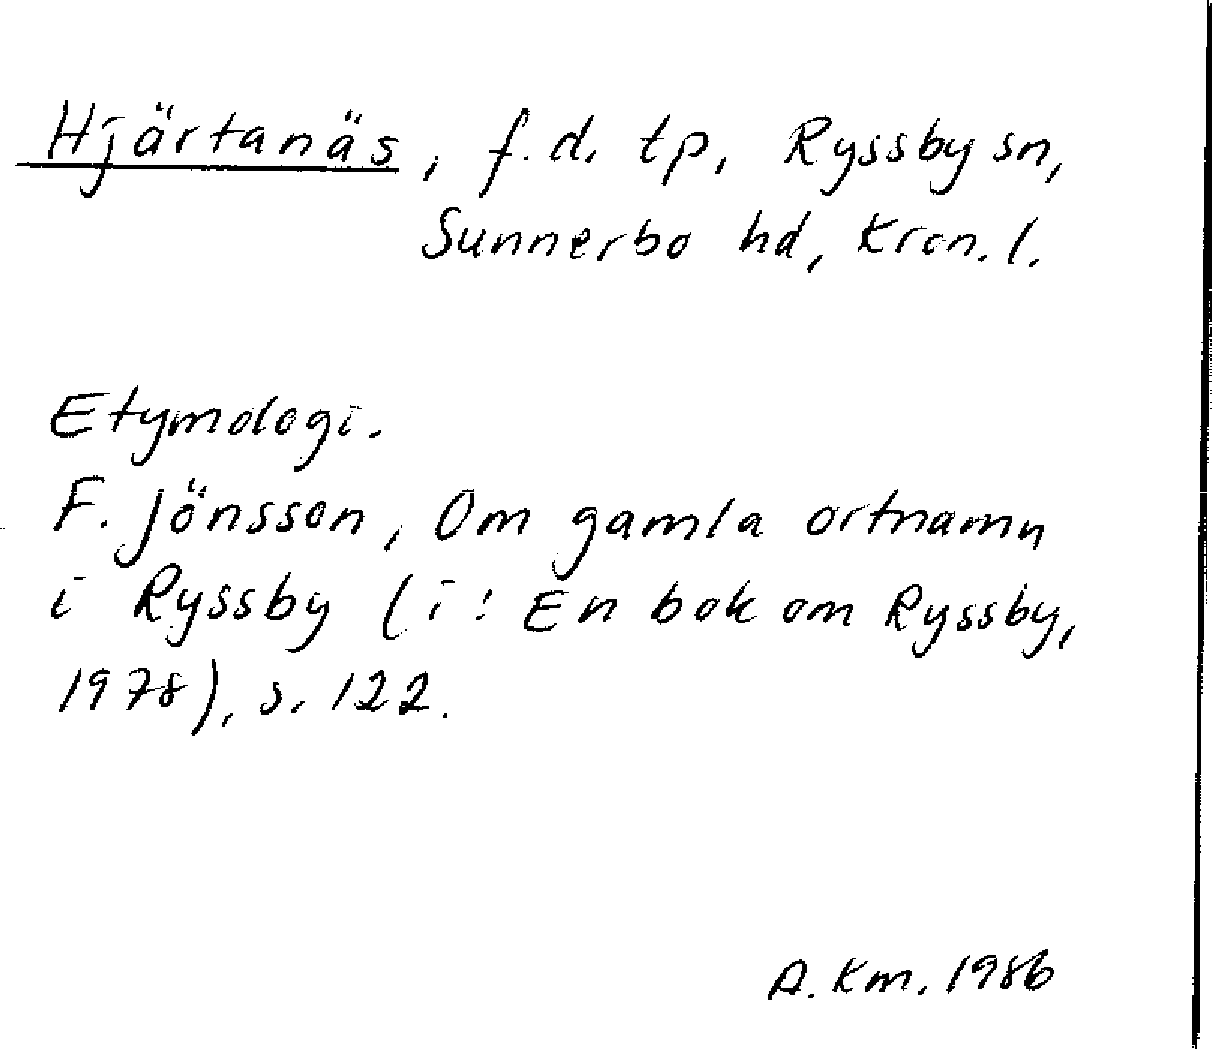 Hjärtanäs, f.d. tp, Ryssby sn,
Sunnerbo hd, Kron. l.
Etymologi.
F. Jönsson, Om gamla ortnamn
i Ryssby (i: En bok om Ryssby,
1978), s. 122.
A. Km. 1986